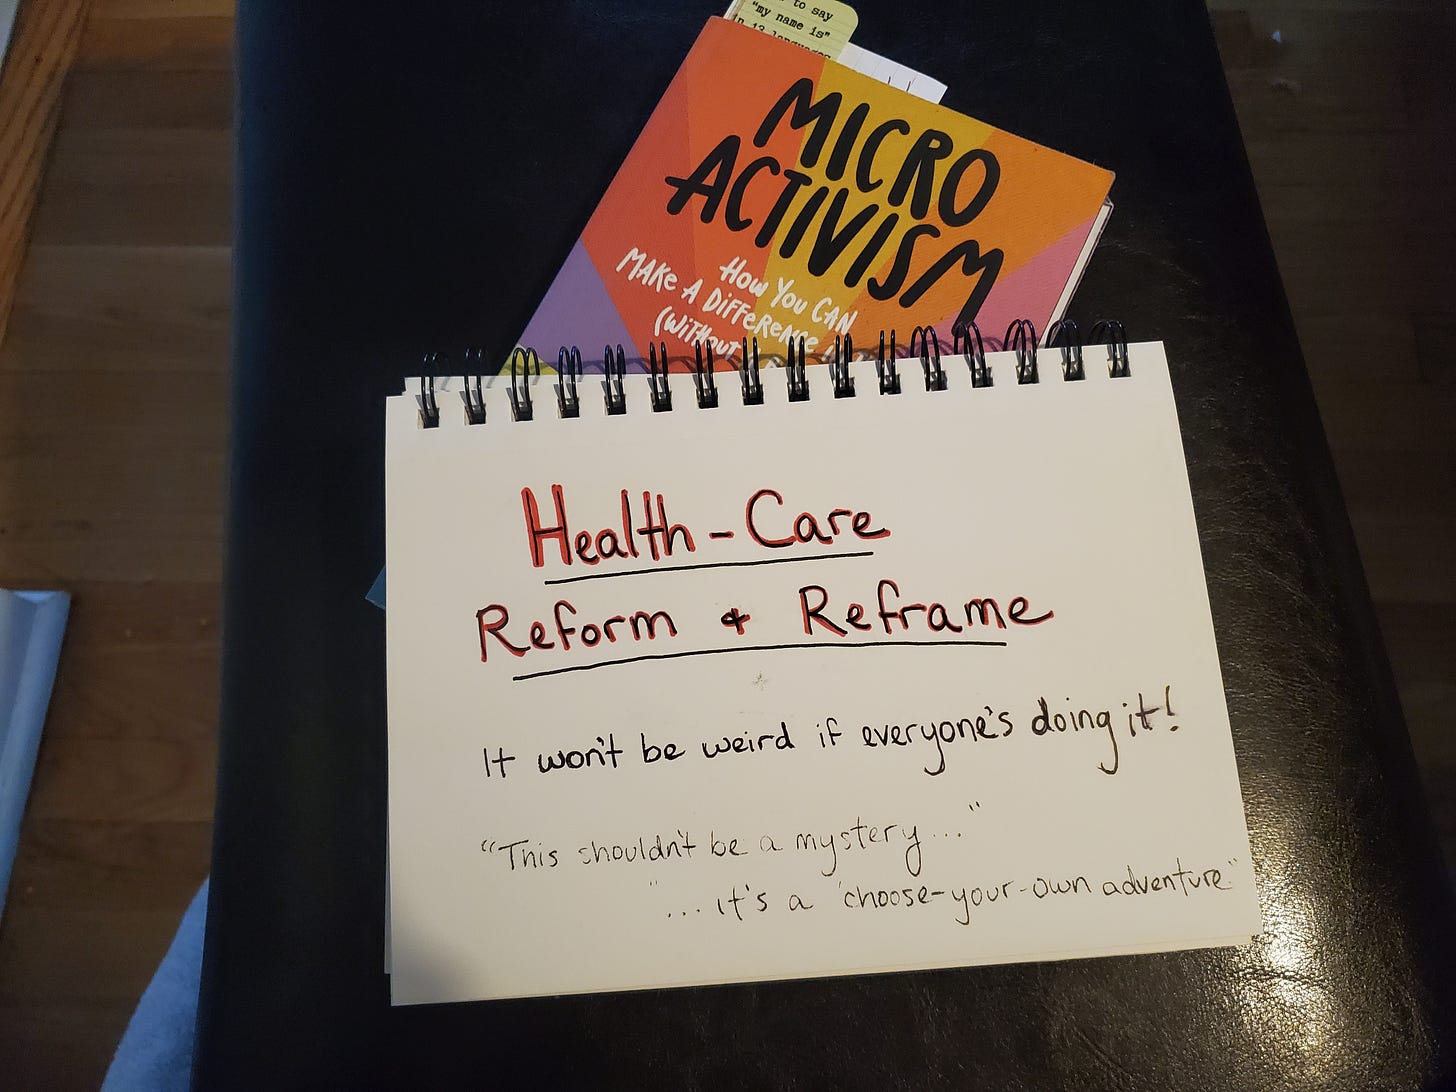 to say
"my name is"
in 13 languages
MICRO
ACTIVISM
HOW YOU CAN
MAKE A DIFFERENCE
(WITHOUT
Health-Care
Reform & Reframe
It won't be weird if everyone's doing it!
"This shouldn't be a mystery..."
"...it's a 'choose-your-own adventure'"